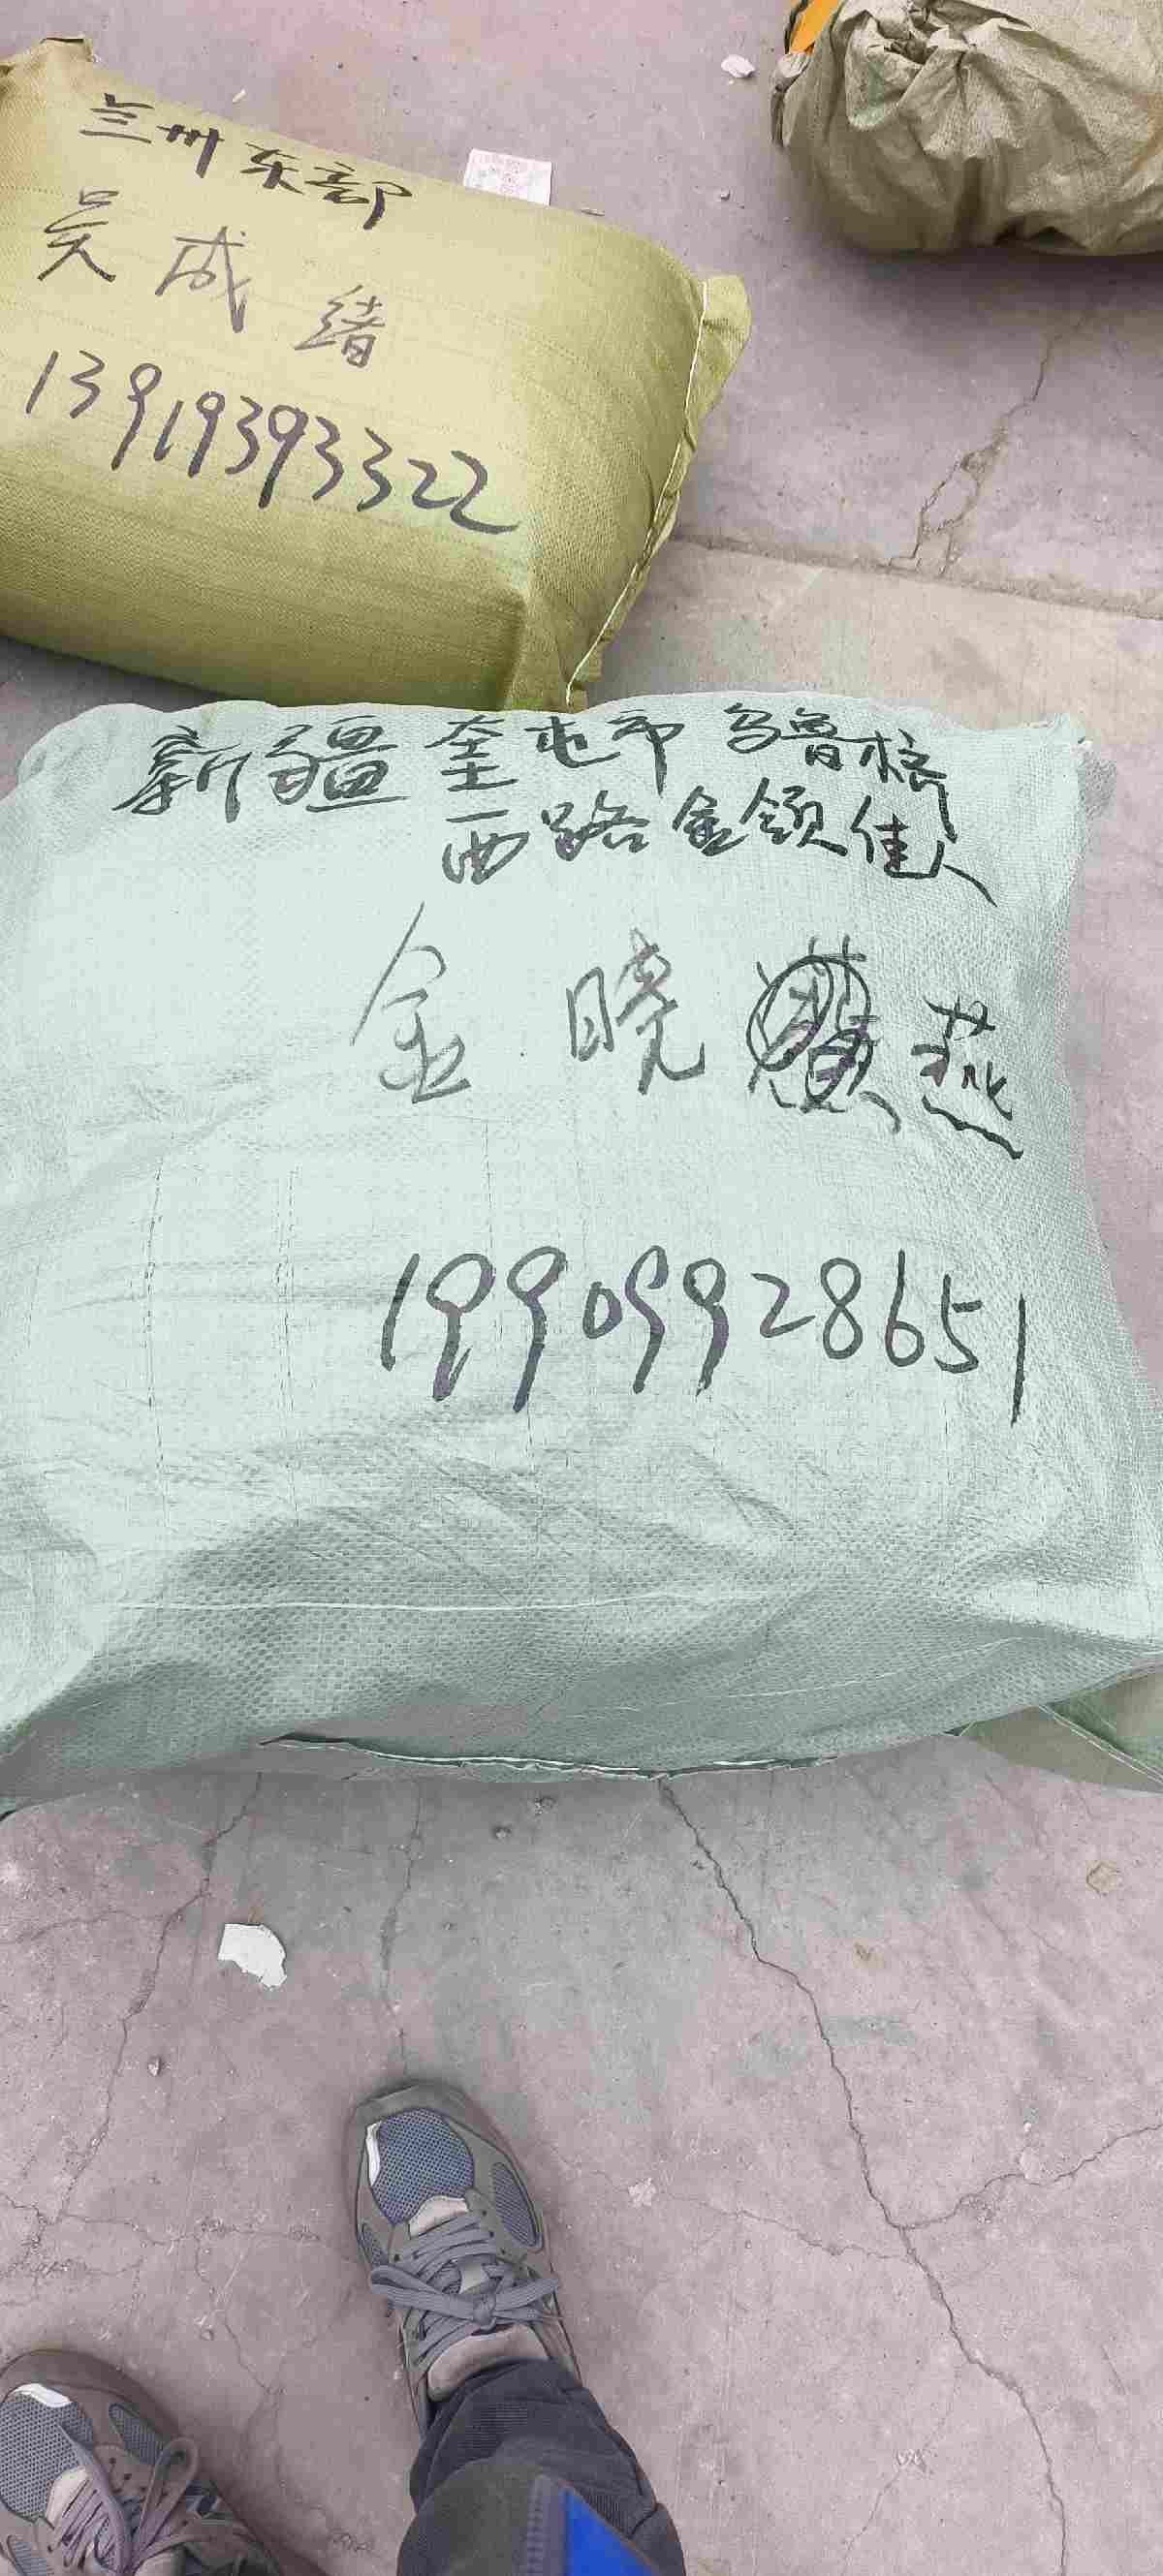 兰州东部
吴成绪
13919393322
新疆奎屯市乌鲁木齐
西路金领佳人
金晓燕
19909928651